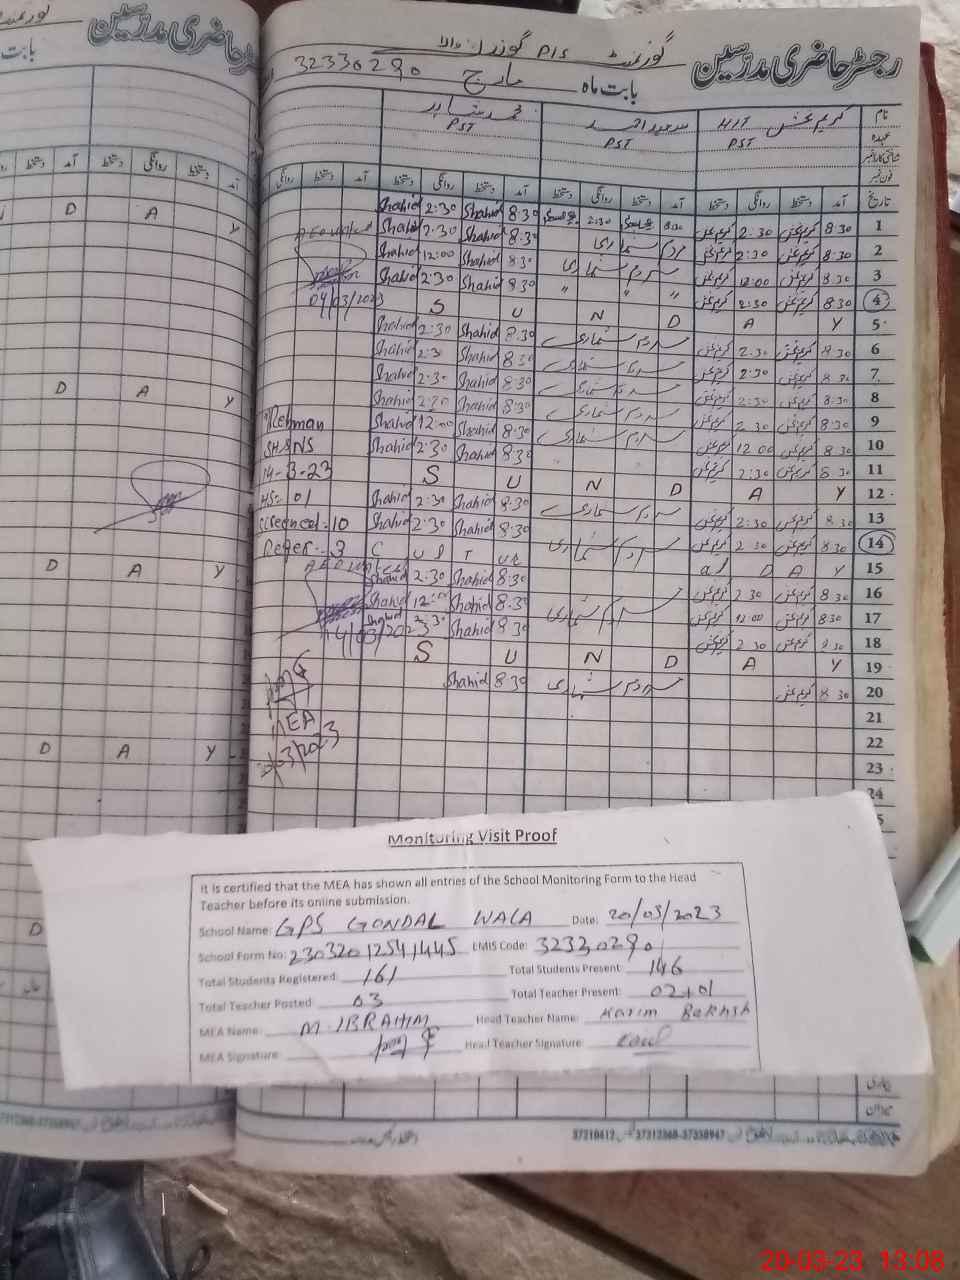 رجسٹر حاضری مدرسین
گورنمنٹ P/S گونڈل والا
بابت ماہ مارچ 32330290
نام کریم بخش H/T سعید احمد محمد شاہد
عہدہ PST PST PST
شناختی کارڈ نمبر
فون نمبر
تاریخ آمد دستخط روانگی دستخط آمد دستخط روانگی دستخط آمد دستخط روانگی دستخط آمد دستخط روانگی
1 8:30 کریم بخش 2:30 کریم بخش 8:30 2:30 8:30 Shahid 2:30 Shahid
2 8:30 کریم بخش 2:30 کریم بخش مردم شماری 8:30 Shahid 2:30 Shahid
3 8:30 کریم بخش 12:00 کریم بخش مردم شماری 8:30 Shahid 12:00 Shahid
4 8:30 کریم بخش 2:30 کریم بخش " " " 8:30 Shahid 2:30 Shahid
04/03/2023
5 S U N D A Y
6 8:30 کریم بخش 2:30 کریم بخش مردم شماری 8:30 Shahid 2:30 Shahid
7 8:30 کریم بخش 2:30 کریم بخش مردم شماری 8:30 Shahid 2:30 Shahid
8 8:30 کریم بخش 2:30 کریم بخش مردم شماری 8:30 Shahid 2:30 Shahid
9 8:30 کریم بخش 2:30 کریم بخش مردم شماری 8:30 Shahid 2:30 Shahid
10 8:30 کریم بخش 12:00 کریم بخش مردم شماری 8:30 Shahid 12:00 Shahid
11 8:30 کریم بخش 2:30 کریم بخش 8:30 Shahid 2:30 Shahid
12 S U N D A Y
13 8:30 کریم بخش 2:30 کریم بخش مردم شماری 8:30 Shahid 2:30 Shahid
14 8:30 کریم بخش 2:30 کریم بخش 8:30 Shahid 2:30 Shahid
15 C U L T U R al D A Y مردم شماری
16 8:30 کریم بخش 2:30 کریم بخش 8:30 Shahid 2:30 Shahid
17 8:30 کریم بخش 12:00 کریم بخش مردم شماری 8:30 Shahid 12:00 Shahid
18 8:30 کریم بخش 2:30 کریم بخش 8:30 Shahid 2:30 Shahid
19 S U N D A Y
20 8:30 کریم بخش مردم شماری 8:30 Shahid
21
22
23
24
Rehman
SH&NS
14-3-23
HS- 101
Screened- 10
Refer- 3
14/03/2023
MEA
/03/2023
D A Y
D A Y
D A Y
D A Y
D
Monitoring Visit Proof
It is certified that the MEA has shown all entries of the School Monitoring Form to the Head
Teacher before its online submission.
School Name: GPS GONDAL WALA Date: 20/03/2023
School Form No: 23032012541445 EMIS Code: 32330290
Total Students Registered: 161 Total Students Present: 146
Total Teacher Posted: 03 Total Teacher Present: 02+01
MEA Name: M. IBRAHIM Head Teacher Name: Karim Bakhsh
MEA Signature: Head Teacher Signature:
37210612 37312368-37338947
20-03-23 13:08